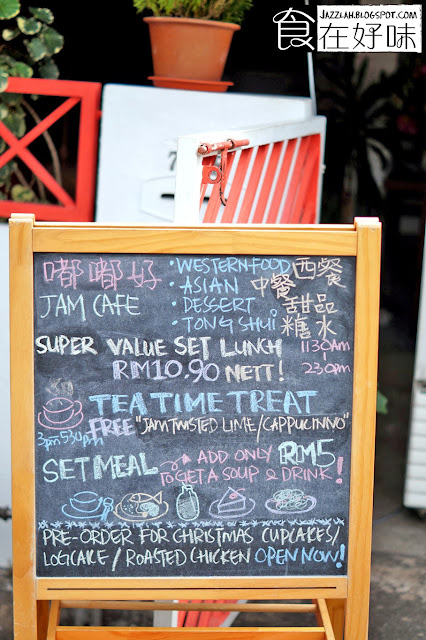 JAZZLAH.BLOGSPOT.COM
食在好味
嘟嘟好
JAM CAFE
· WESTERN FOOD 西餐
· ASIAN 中餐
· DESSERT 甜品
· TONG SHUI 糖水
SUPER VALUE SET LUNCH
RM10.90 NETT!
1130AM
-
230PM
TEA TIME TREAT
FREE "JAM TWISTED LIME/CAPPUCINNO"
3pm-530pm
SET MEAL
ADD ONLY RM5
TO GET A SOUP & DRINK!
PRE-ORDER FOR CHRISTMAS CUPCAKES/
LOGCAKE/ROASTED CHICKEN OPEN NOW!